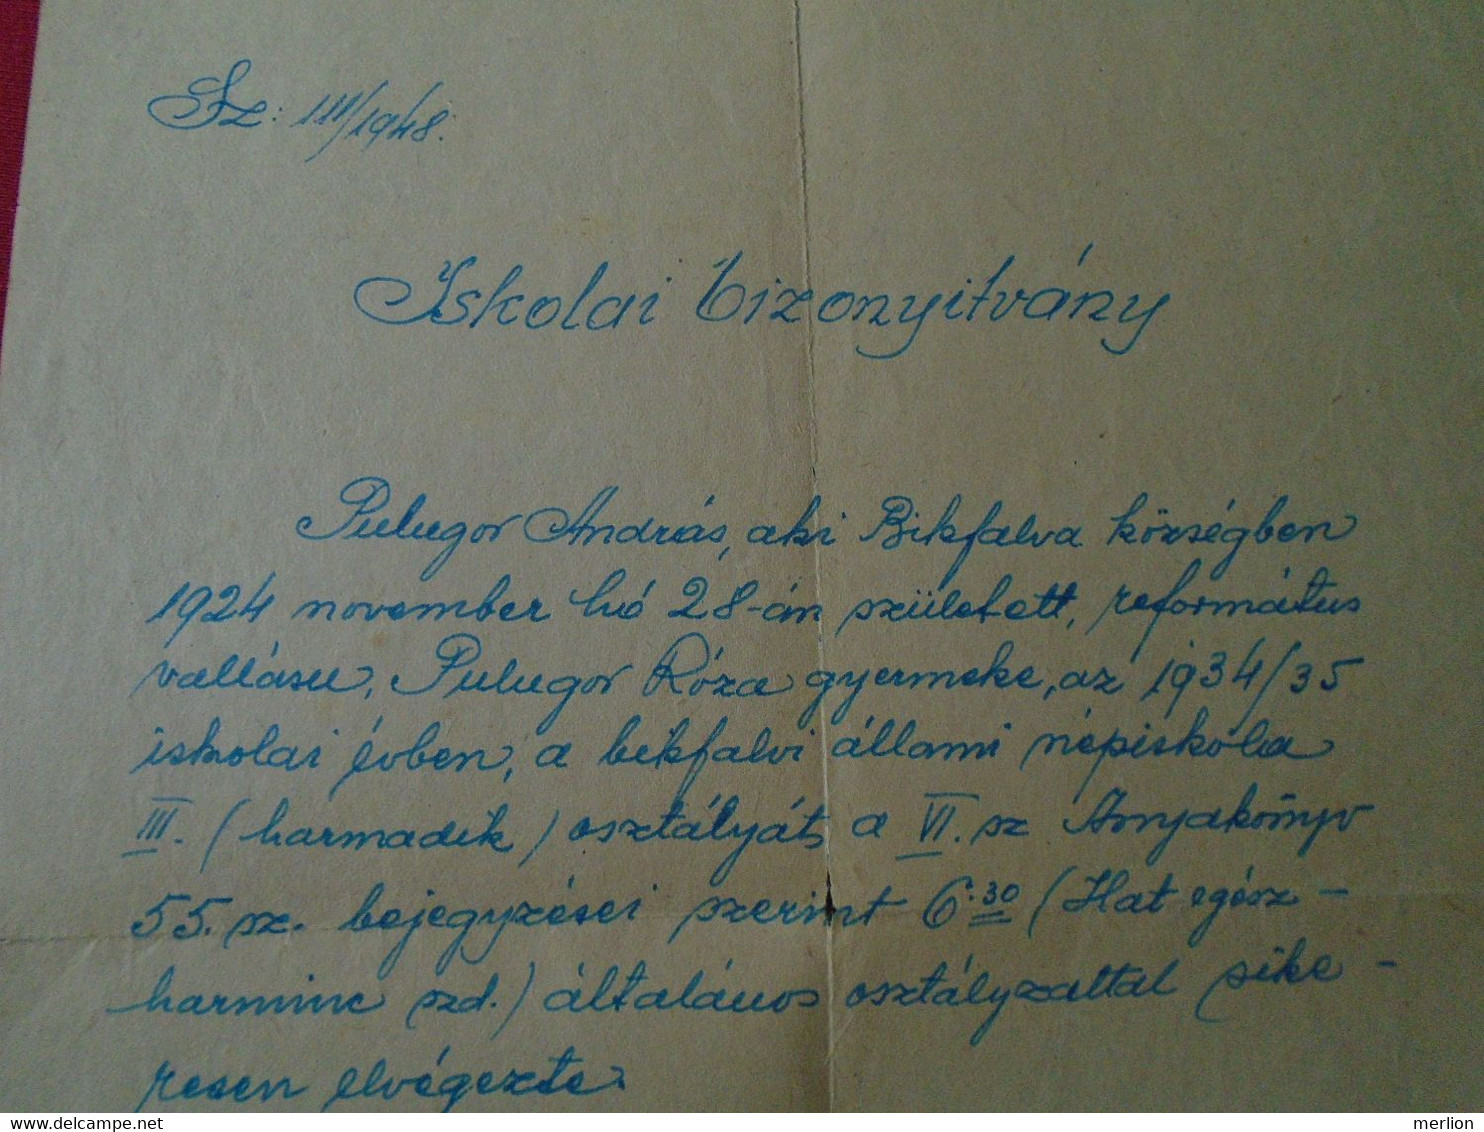 Sz: III/1948.
Iskolai bizonyitvány
Pulugor András, aki Bikfalva községben
1924 november hó 28-án született, református
vallásu, Pulugor Róza gyermeke, az 1934/35
iskolai évben, a bikfalvi állami népiskola
III. (harmadik) osztályát, a VI. sz Annyakönyv
55. sz. bejegyzései szerint 6.30 (Hat egész -
harminc szd.) általános osztályzattal sike -
resen elvégezte.
merlion